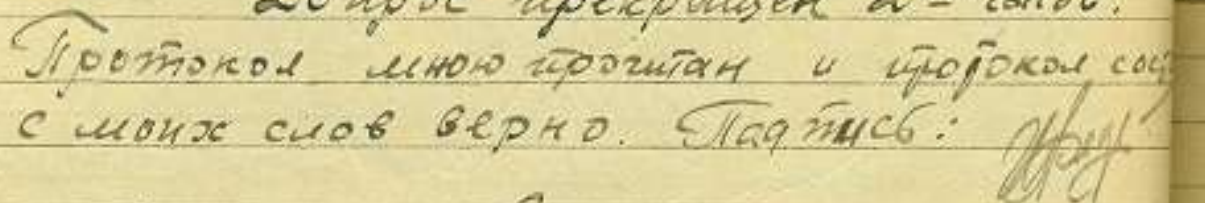 Допрос прекращен 2 - часов.
Протокол мною прочитан и протокол
с моих слов верно. Падпись: